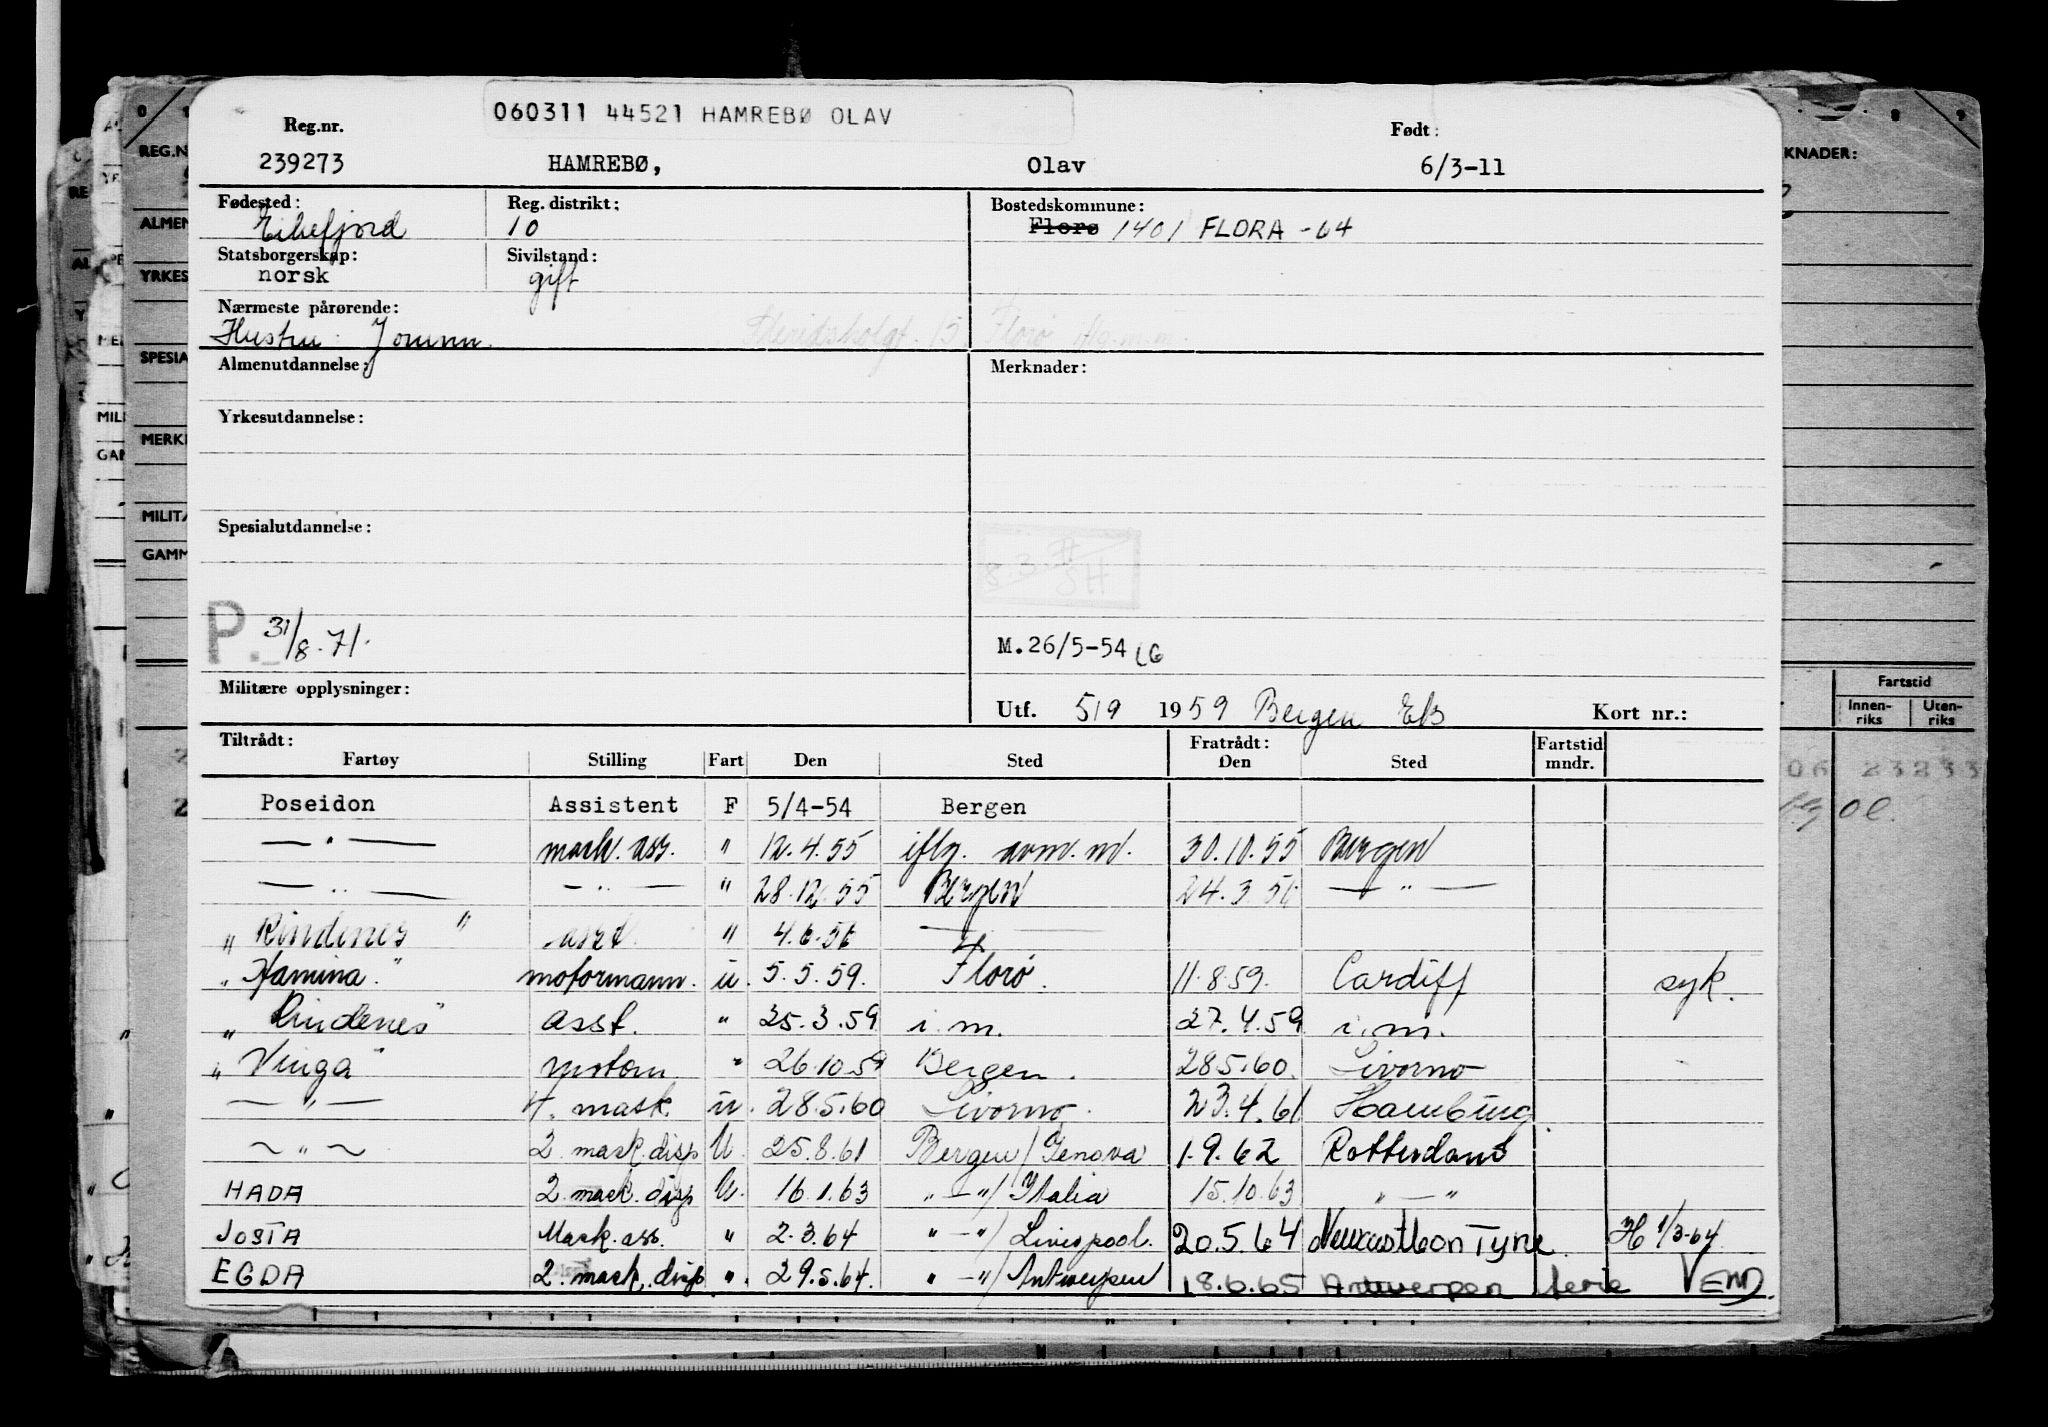 060311 44521 HAMREBØ OLAV
Reg.nr. Født:
239273 HAMREBØ, Olav 6/3-11
Fødested: Reg. distrikt: Bostedskommune:
Eikefjord 10 Florø 1401 FLORA -64
Statsborgerskap: Sivilstand:
norsk gift
Nærmeste pårørende:
Hustru: Jorunn. 15 Florø
Almenutdannelse: Merknader:
Yrkesutdannelse:
Spesialutdannelse:
8.3. SH
P. 31/8-71. M.26/5-54 LG
Militære opplysninger:
Utf. 5/9 1959 Bergen EB Kort nr.:
Tiltrådt: Fratrådt: Fartstid
Fartøy Stilling Fart Den Sted Den Sted mndr.
Poseidon Assistent F 5/4-54 Bergen
— " — mask. ass. " 12.4.55 iflg. avm. m. 30.10.55 Bergen
— " — — " — " 28.12.55 Bergen 24.3.56 — " —
" Rindenes " asst. " 4.6.56 —
" Hamina " motormann. u. 5.5.59. Florø. 11.8.59. Cardiff syk.
" Rindenes " asst. " 25.3.59 i. m. 27.4.59 i. m.
" Vinga " motom. " 26.10.59 Bergen. 28.5.60. Livorno
— " — 4. mask. u. 28.5.60 Livorno. 23.4.61 Hamburg.
~ " ~ 2. mask. disp U. 25.8.61 Bergen/Genova 1.9.62 Rotterdam
HADA 2. mask. disp U. 16.1.63 " — "/Italia 15.10.63 " — "
JOSTA Mask. ass. " 2.3.64 " — "/Liverpool. 20.5.64 Newcastle on Tyne. H 1/3-64
EGDA 2. mask. disp ". 29.5.64. " — "/Antwerpen 18.6.65 Antwerpen ferie VEND.
REG.N
ALMEN
YRKES
SPESIA
MERK
MILITÆ
GAMM
KNADER:
Fartstid
Innen-riks Uten-riks
06 23233